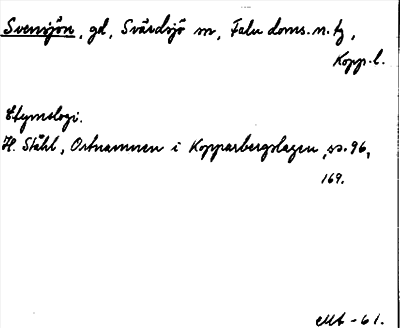 Svensjön, gd, Svärdsjö sn, Falu doms. n. tg,
Kopp. l.
Etymologi.
H. Ståhl, Ortnamnen i Kopparbergslagen, ss. 96,
169.
-61.